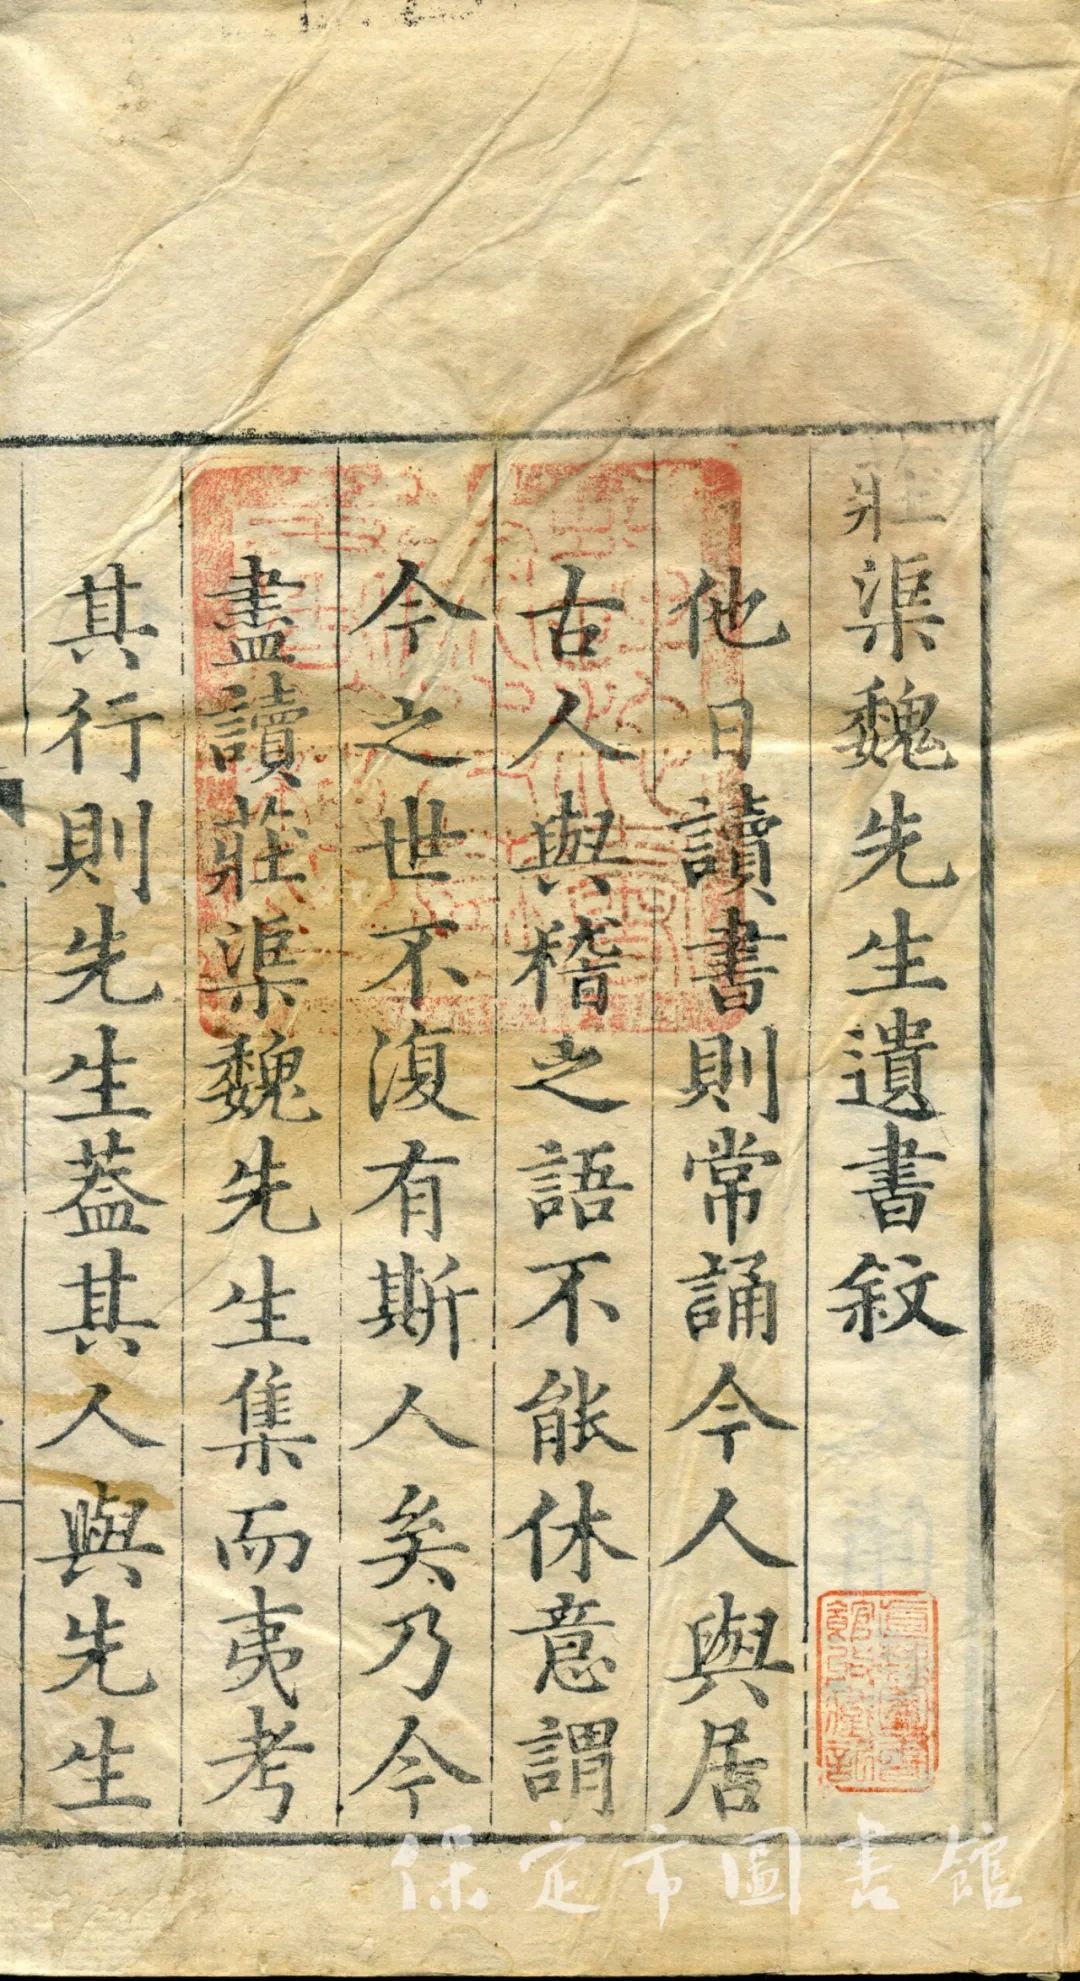 莊渠魏先生遺書敘
他日讀書則常誦今人與居
古人與稽之語不能休意謂
今之世不復有斯人矣乃今
盡讀莊渠魏先生集而夷考
其行則先生葢其人與先生
保定市圖書館